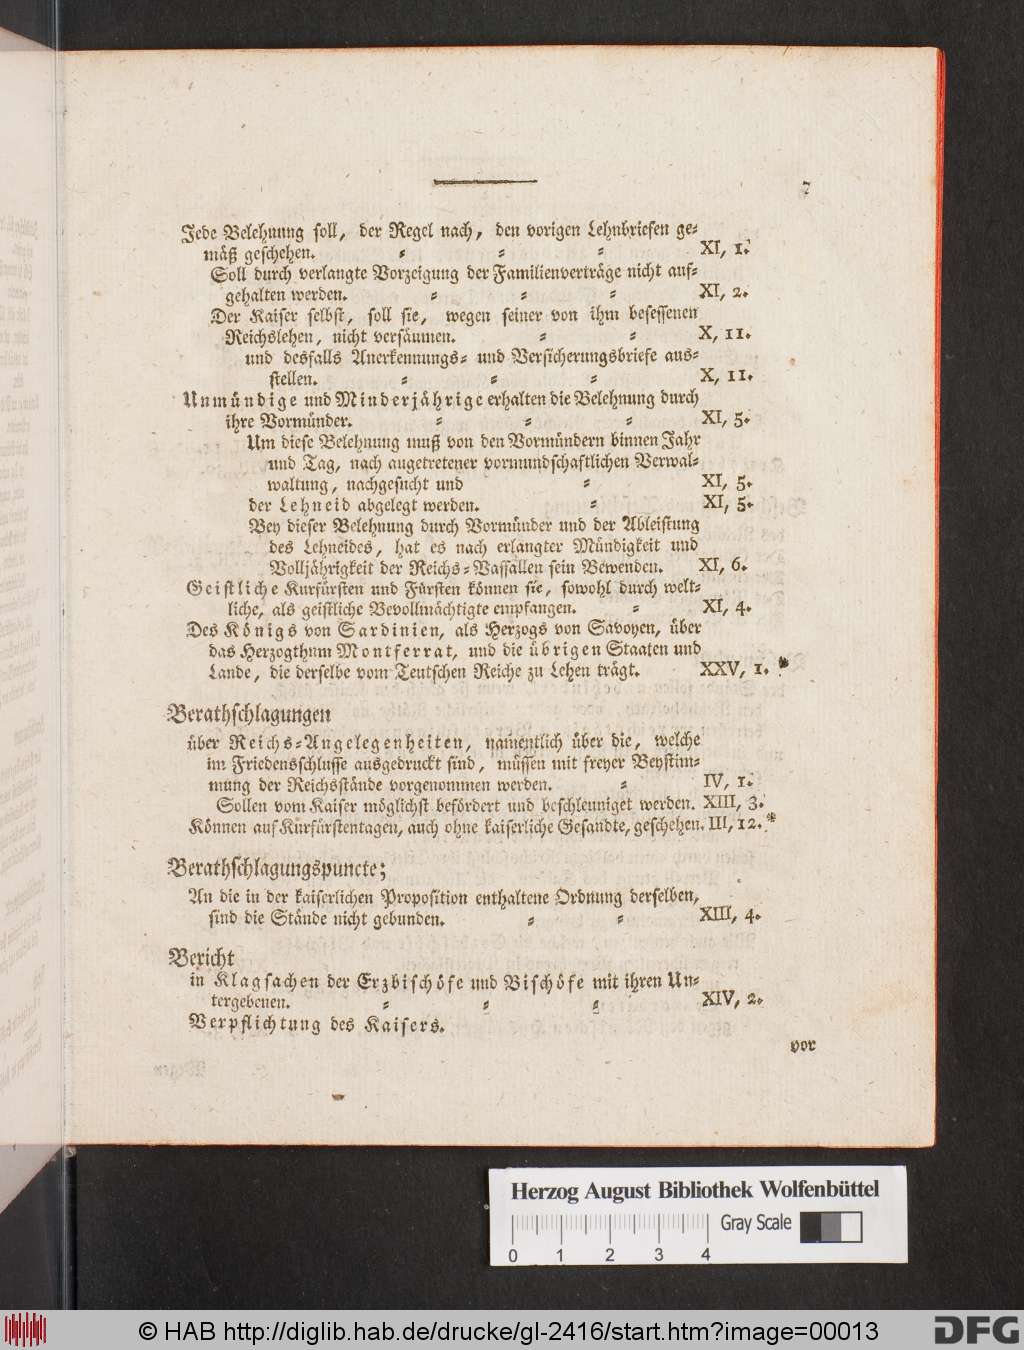 7
Jede Belehnung soll, der Regel nach, den vorigen Lehnbriefen ge-
mäß geschehen. = = = XI, 1.
Soll durch verlangte Vorzeigung der Familienverträge nicht auf-
gehalten werden. = = = XI, 2.
Der Kaiser selbst, soll sie, wegen seiner von ihm besessenen
Reichslehen, nicht versäumen. = = X, 11.
und desfalls Anerkennungs- und Versicherungsbriefe aus-
stellen. = = = X, 11.
Unmündige und Minderjährige erhalten die Belehnung durch
ihre Vormünder. = = = XI, 5.
Um diese Belehnung muß von den Vormündern binnen Jahr
und Tag, nach angetretener vormundschaftlichen Verwal-
waltung, nachgesucht und = XI, 5.
der Lehneid abgelegt werden. = XI, 5.
Bey dieser Belehnung durch Vormünder und der Ableistung
des Lehneides, hat es nach erlangter Mündigkeit und
Volljährigkeit der Reichs-Vassallen sein Bewenden. XI, 6.
Geistliche Kurfürsten und Fürsten können sie, sowohl durch welt-
liche, als geistliche Bevollmächtigte empfangen. = XI, 4.
Des Königs von Sardinien, als Herzogs von Savoyen, über
das Herzogthum Montferrat, und die übrigen Staaten und
Lande, die derselbe vom Teutschen Reiche zu Lehen trägt. XXV, 1. *
Berathschlagungen
über Reichs-Angelegenheiten, namentlich über die, welche
im Friedensschlusse ausgedruckt sind, müssen mit freyer Beystim-
mung der Reichsstände vorgenommen werden. = IV, 1.
Sollen vom Kaiser möglichst befördert und beschleuniget werden. XIII, 3.
Können auf Kurfürstentagen, auch ohne kaiserliche Gesandte, geschehen. III, 12. *
Berathschlagungspuncte;
An die in der kaiserlichen Proposition enthaltene Ordnung derselben,
sind die Stände nicht gebunden. = = XIII, 4.
Bericht
in Klagsachen der Erzbischöfe und Bischöfe mit ihren Un-
tergebenen. = = = XIV, 2.
Verpflichtung des Kaisers.
vor
Herzog August Bibliothek Wolfenbüttel
Gray Scale
0 1 2 3 4
© HAB http://diglib.hab.de/drucke/gl-2416/start.htm?image=00013
DFG